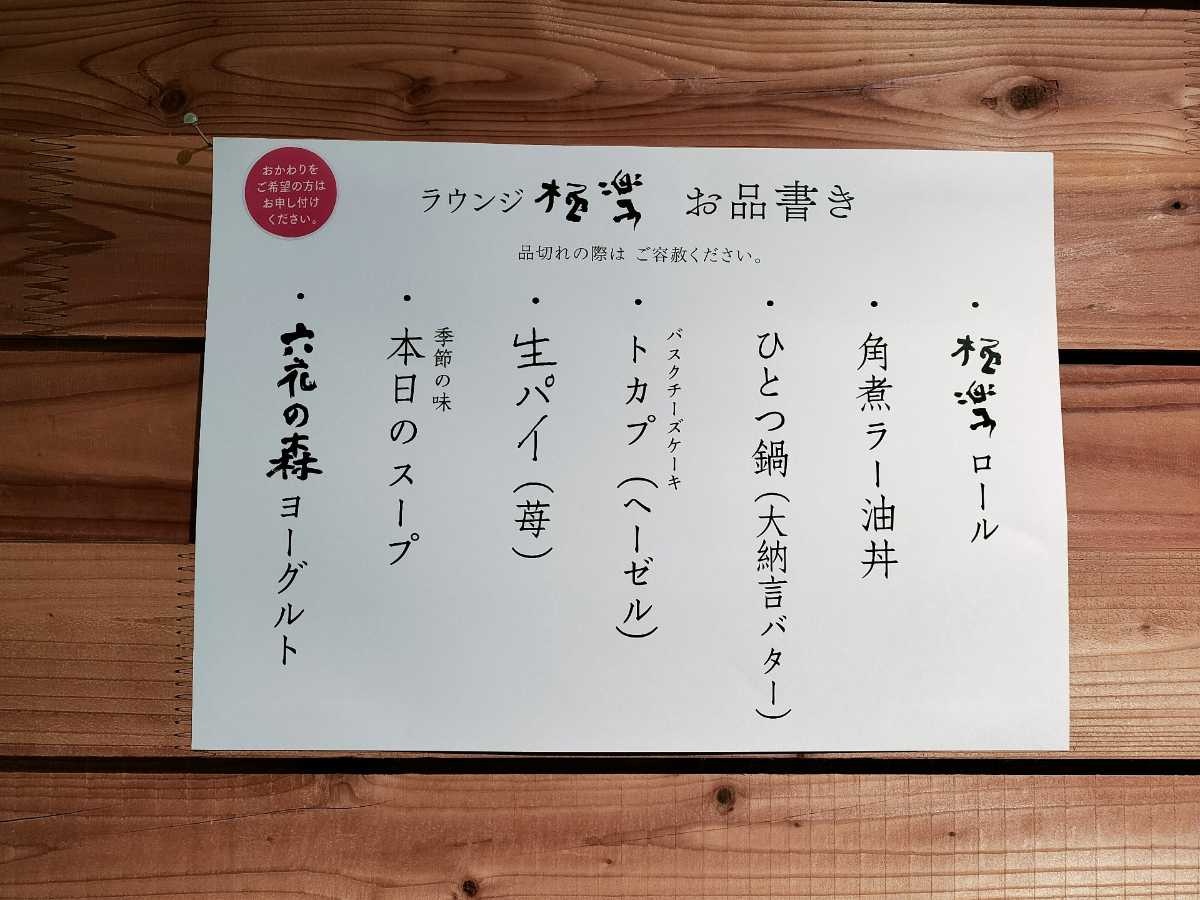 おかわりを
ご希望の方は
お申し付け
ください。
ラウンジ 極楽 お品書き
品切れの際は ご容赦ください。
・極楽ロール
・角煮ラー油丼
・ひとつ鍋(大納言バター)
バスクチーズケーキ
・トカプ(ヘーゼル)
・生パイ(苺)
季節の味
・本日のスープ
・六花の森ヨーグルト